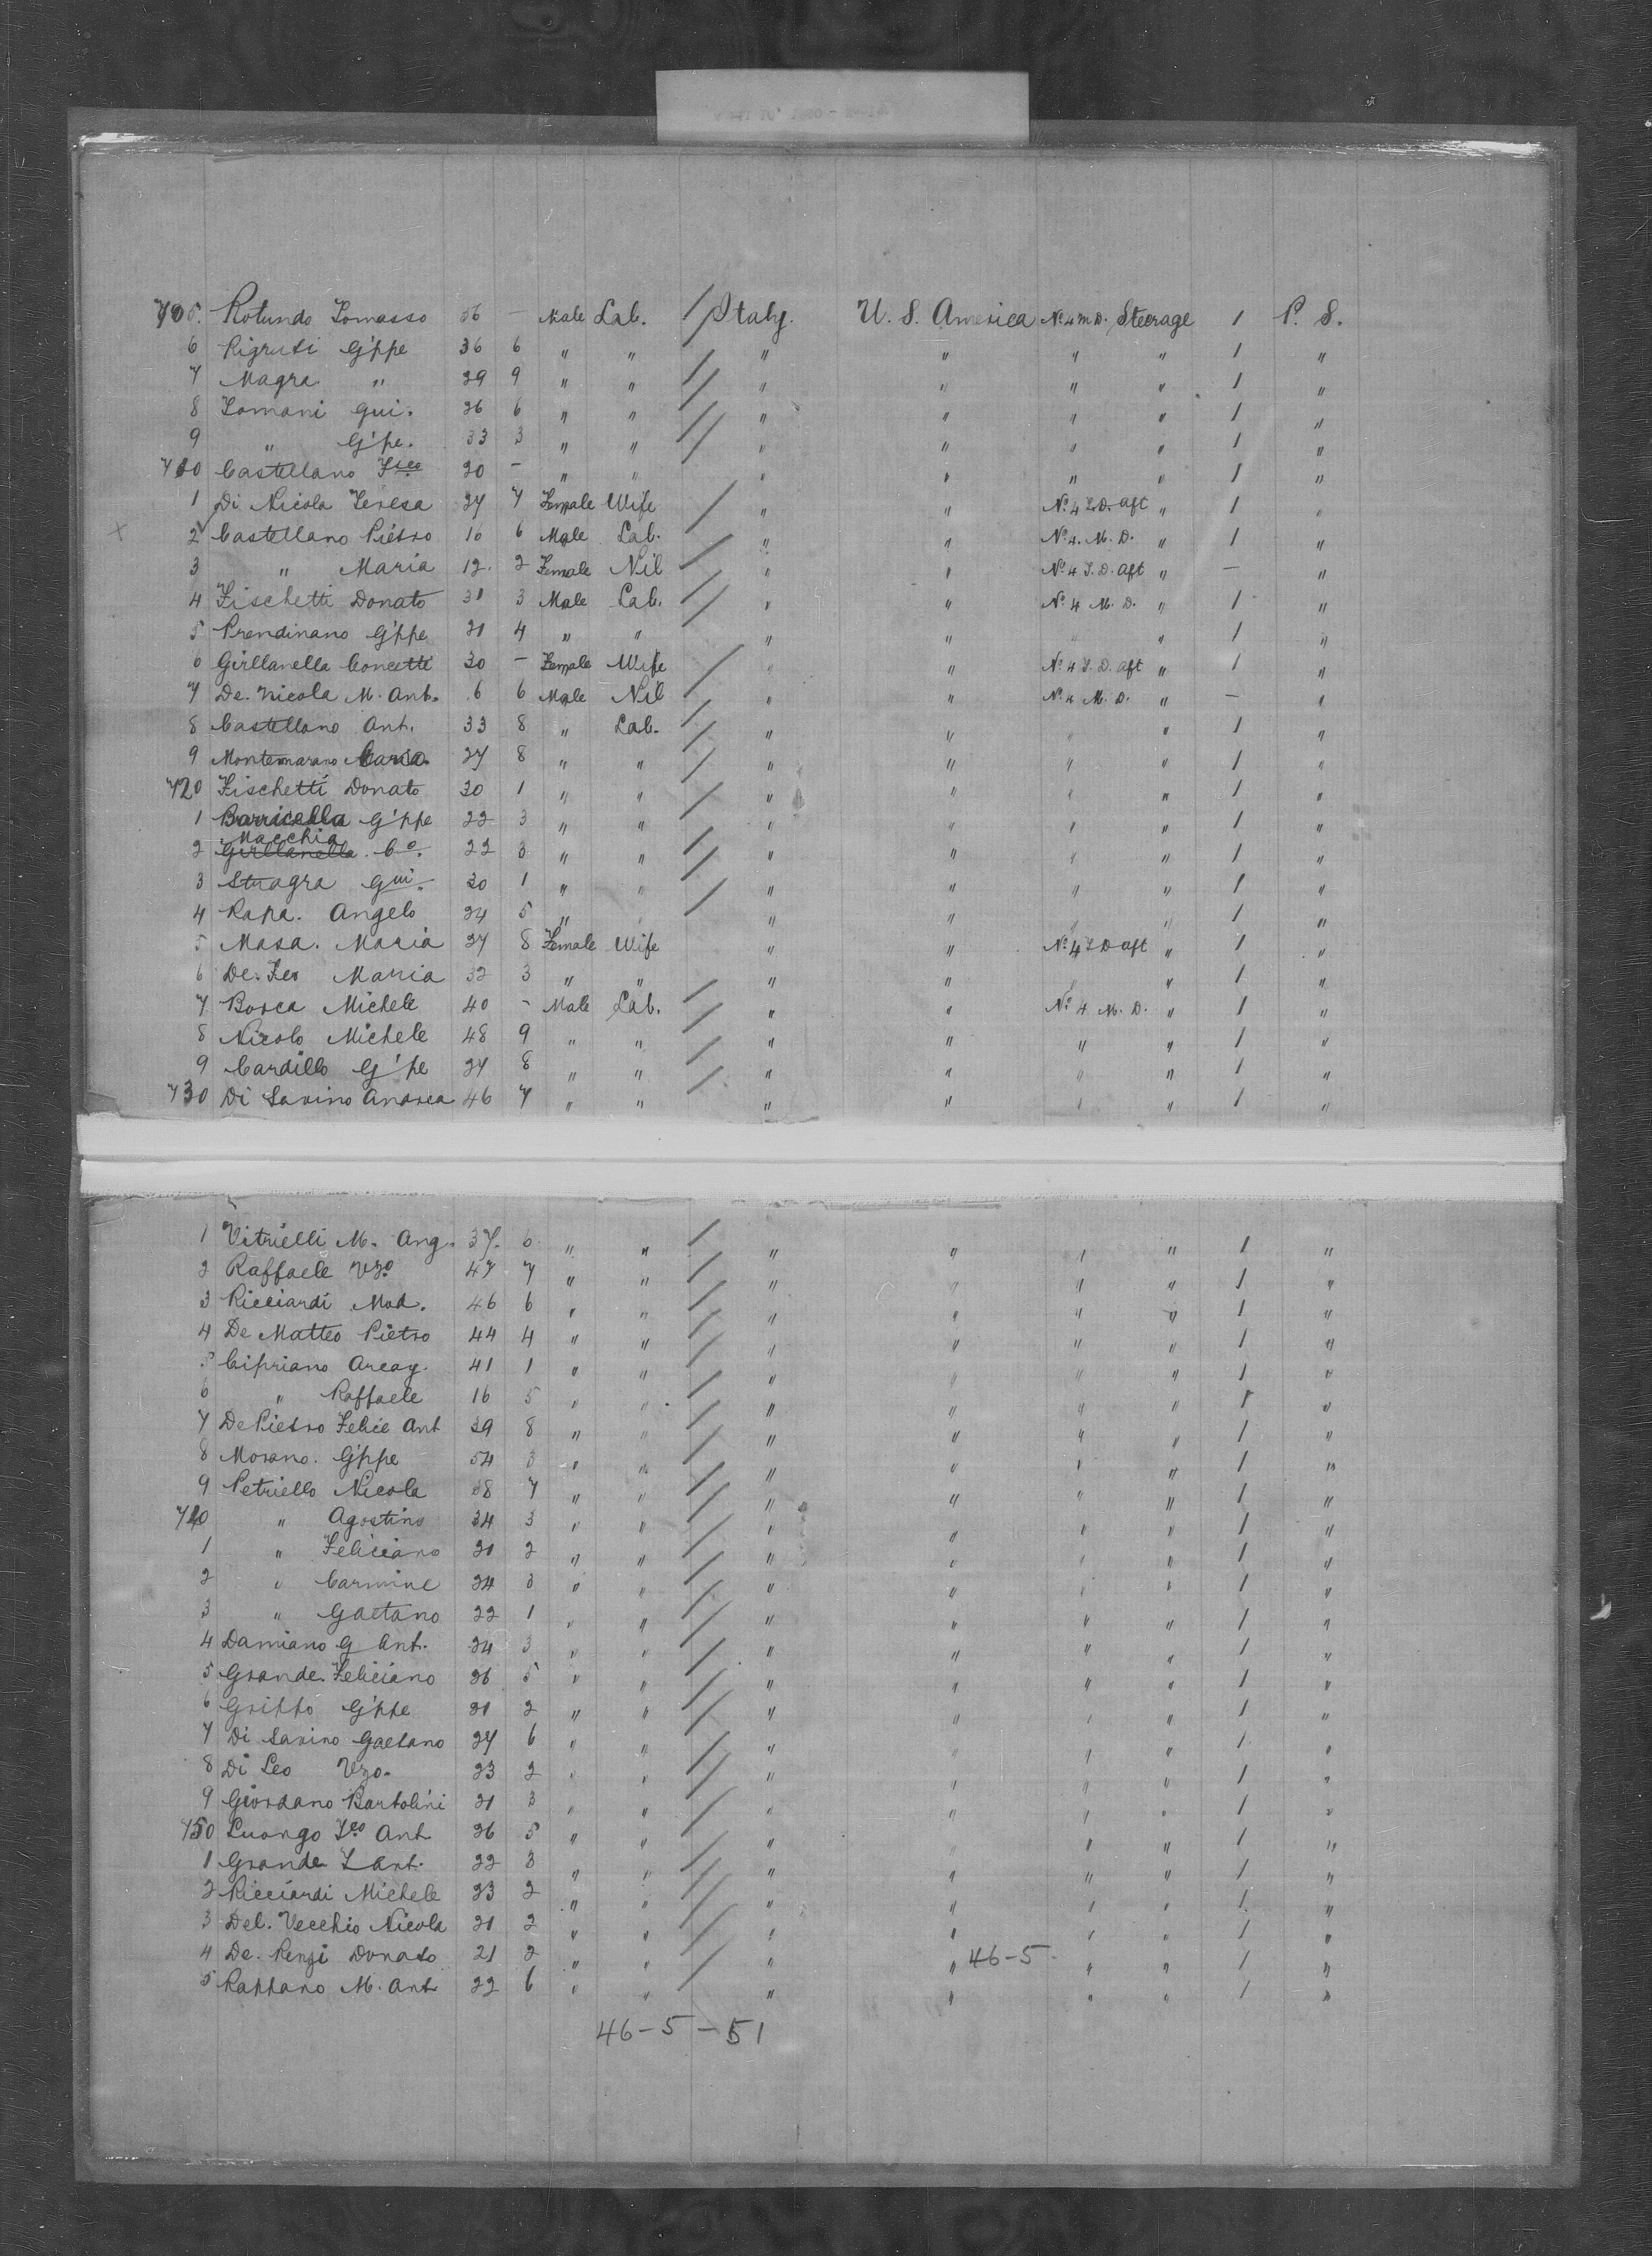 705. Rotundo Tomasso 56 — Male Lab. / Italy. U. S. America No 4 M D. Steerage 1 P. S.
6 Rigruti G'ppe 36 6 " " / " " " " 1 "
7 Magra " 29 9 " " / " " " " 1 "
8 Tomani Gui. 26 6 " " / " " " " 1 "
9 " G'pe. 33 3 " " / " " " " 1 "
710 Castellano Fco 20 — " " " " " " 1 "
1 Di Nicola Teresa 27 7 Female Wife / " " No 4 L.D. aft " 1 "
2 Castellano Pietro 16 6 Male Lab. / " " No 4. M. D. " 1 "
3 " Maria 12. 2 Female Nil / " " No 4 L.D. aft " — "
4 Fischetti Donato 31 3 Male Lab. / " " No 4 M. D. " 1 "
5 Prendinano G'ppe 21 4 " " " " " " 1 "
6 Girllanella Concetti 30 — Female Wife / " " No 4 L.D. aft " 1 "
7 De. Nicola M. Ant. 6 6 Male Nil " " No 4 M. D. " — "
8 Castellano Ant. 33 8 " Lab. / " " " " 1 "
9 Montemarano Maria. 27 8 " " / " " " " 1 "
720 Fischetti Donato 30 1 " " / " " " " 1 "
1 Barricella G'ppe 22 3 " " / " " " " 1 "
Macchia
2 Girllanella. Co. 22 3 " " / " " " " 1 "
3 Stragra Gui. 30 1 " " / " " " " 1 "
4 Rapa. Angelo 24 5 " " " " " " 1 "
5 Masa. Maria 27 8 Female Wife " " No 4 L D aft " 1 "
6 De. Leo Maria 32 3 " " " " " " 1 "
7 Borca Michele 40 - Male Lab. / " " No 4 M. D. " 1 "
8 Nicolo Michele 48 9 " " / " " " " 1 "
9 Cardillo G'pe 24 8 " " / " " " " 1 "
730 Di Savino Andrea 46 7 " " " " " " 1 "
1 Vitrielli M. Ang. 37. 6 " " / " " " " 1 "
2 Raffaele Vzo 47 7 " " / " " " " 1 "
3 Ricciardi Mod. 46 6 " " / " " " " 1 "
4 De Matteo Pietro 44 4 " " / " " " " 1 "
5 Cipriano Arcag. 41 1 " " / " " " " 1 "
6 " Raffaele 16 5 " " / " " " " 1 "
7 De Pietro Felice Ant 39 8 " " / " " " " 1 "
8 Morano. G'ppe 54 3 " " / " " " " 1 "
9 Petriello Nicola 38 7 " " / " " " " 1 "
740 " Agostino 34 3 " " / " " " " 1 "
1 " Feliciano 21 2 " " / " " " " 1 "
2 " Carmine 24 3 " " / " " " " 1 "
3 " Gaetano 22 1 " " / " " " " 1 "
4 Damiano G Ant. 24 3 " " / " " " " 1 "
5 Grande. Feliciano 26 5 " " / " " " " 1 "
6 Grippo G'ppe 21 2 " " / " " " " 1 "
7 Di Savino Gaetano 27 6 " " / " " " " 1 "
8 Di Leo Vzo. 23 2 " " / " " " " 1 "
9 Giordano Bartolini 21 3 " " / " " " " 1 "
750 Luongo Fco Ant 26 5 " " / " " " " 1 "
1 Grande L Ant. 22 3 " " / " " " " 1 "
2 Ricciardi Michele 23 2 " " / " " " " 1 "
3 Del. Vecchio Nicola 21 2 " " / " " " " 1 "
4 De. Renzi Donato 21 2 " " / " " 46-5 " " 1 "
5 Rappano M. Ant 22 6 " " " " " " 1 "
46-5-51